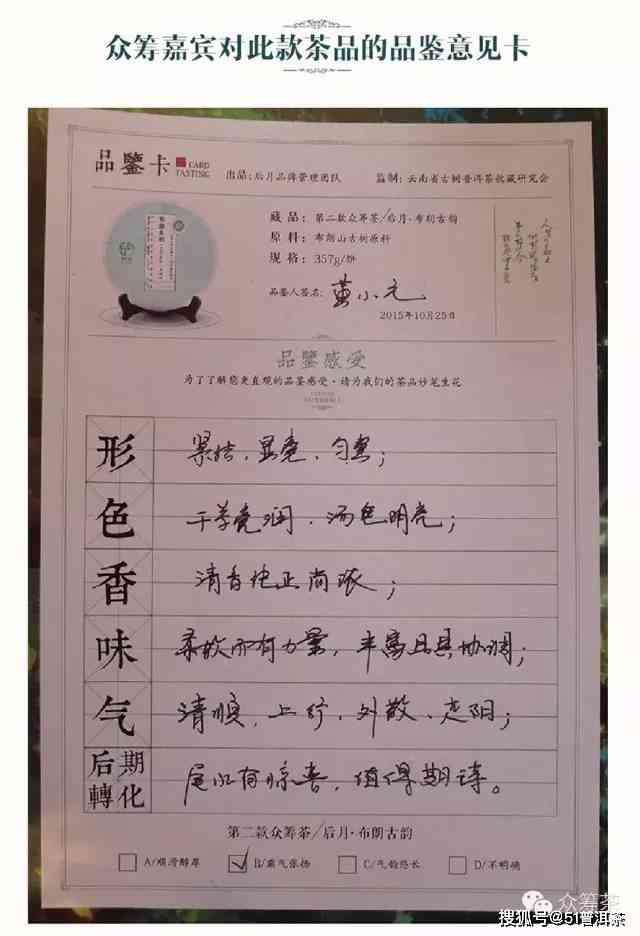 众筹嘉宾对此款茶品的品鉴意见卡
品鑒卡 CARD TASTING
出品：后月品牌管理团队 监制：云南省古树普洱茶收藏研究会
藏品：第二款众筹茶/后月·布朗古韵
原料：布朗山古树原料
规格：357g/饼
品鉴人签名：黄小元
2015年10月25日
品鑒感受
为了了解您更直观的品鉴感受·请为我们的茶品妙笔生花
形 紧结、显毫、匀整；
色 干茶亮润、汤色明亮；
香 清香纯正尚浓；
味 柔软而有力量，丰富且具协调；
气 清顺、上行、外散、走阳；
后期轉化 尾水有惊喜，值得期待。
第二款众筹茶/后月·布朗古韵
A/顺滑醇厚 B/霸气张扬 C/气韵悠长 D/不明确
众筹茶
搜狐号@51普洱茶